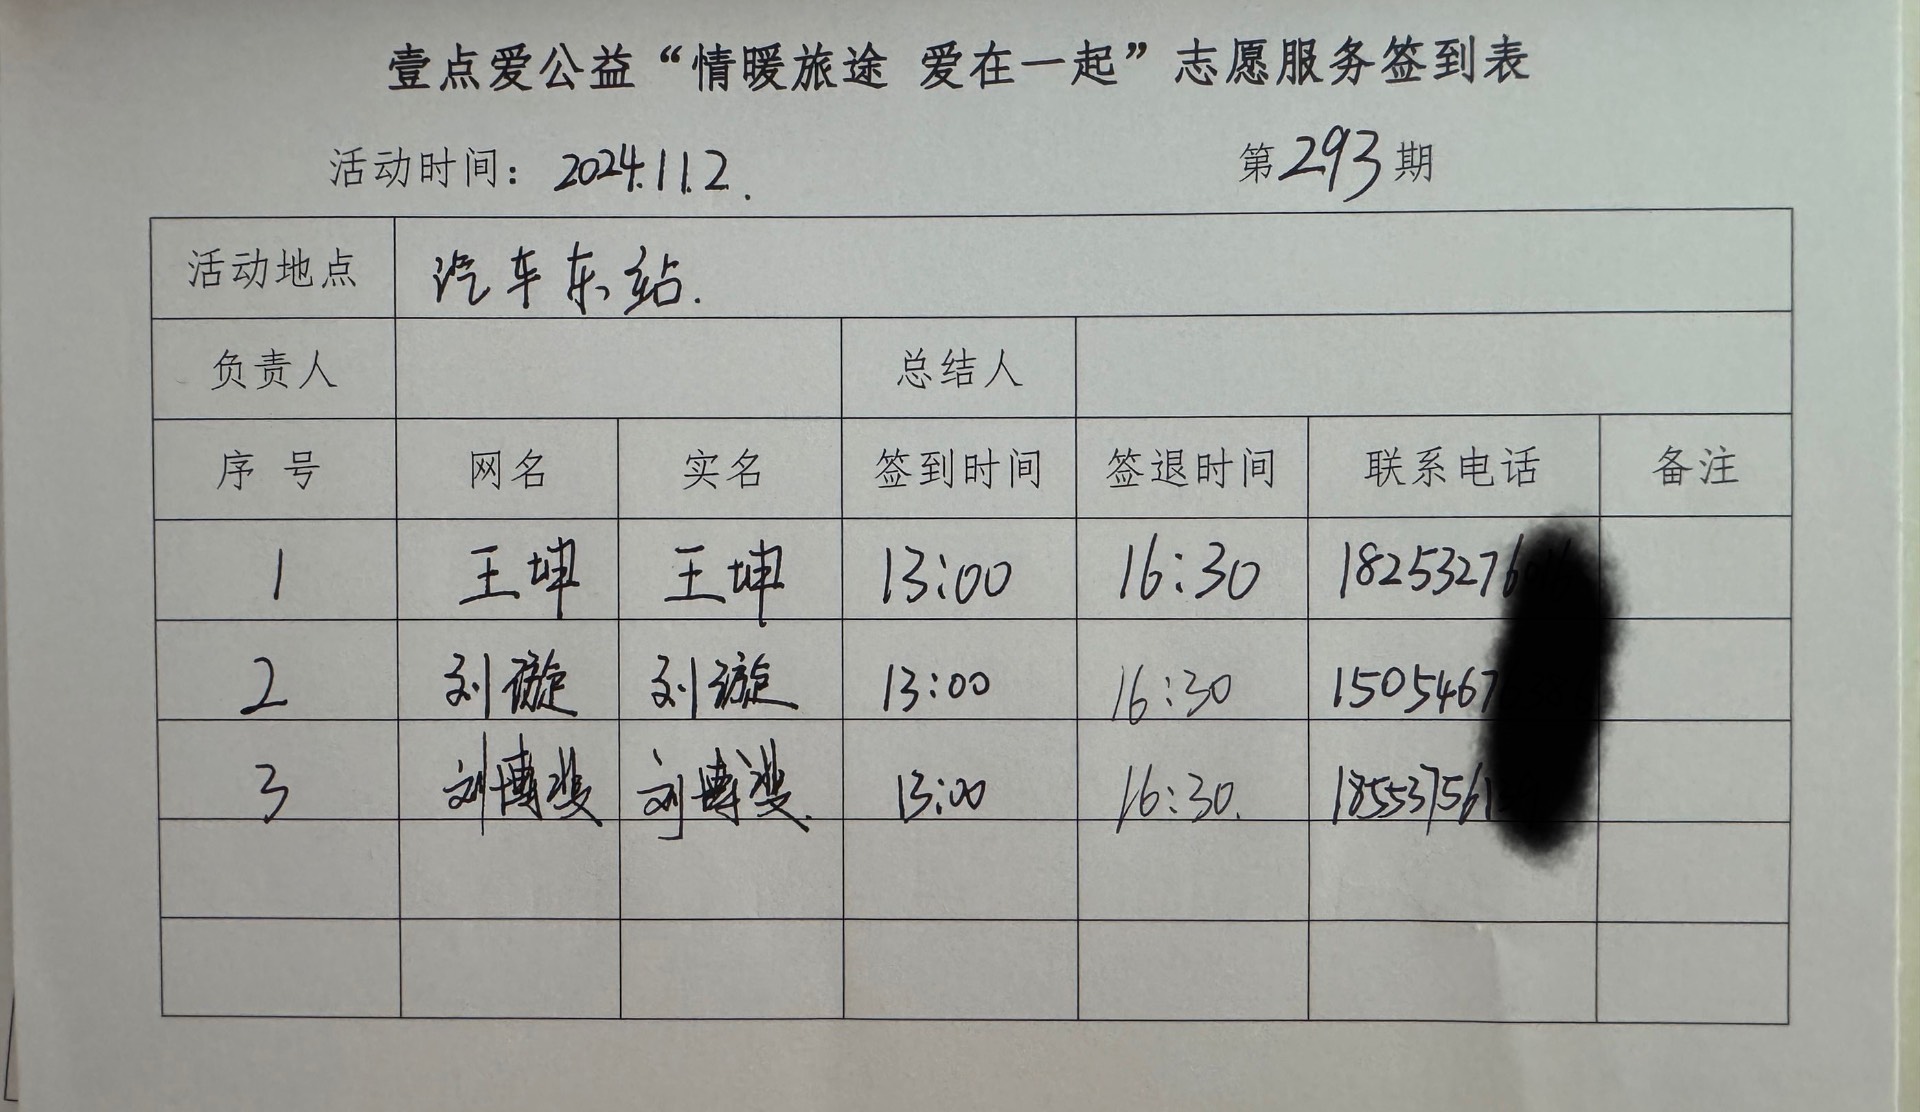 壹点爱公益“情暖旅途 爱在一起”志愿服务签到表
活动时间：2024.11.2. 第293期
活动地点 汽车东站.
负责人 总结人
序号 网名 实名 签到时间 签退时间 联系电话 备注
1 王坤 王坤 13:00 16:30 18253276
2 刘璇 刘璇 13:00 16:30 1505467
3 刘博斐 刘博斐 13:00 16:30. 185537561